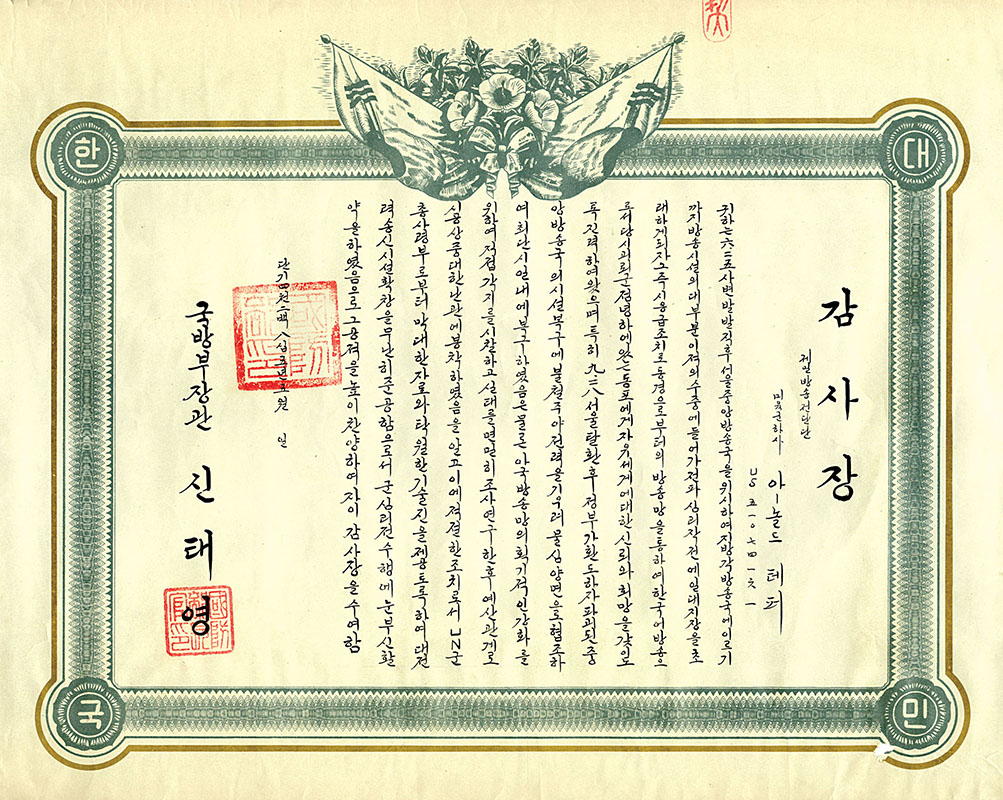 대
한
민
국
감사장
제일방송전단단
미육군하사 아-놀드 테퍼
US 五一〇七四一六一
귀하는 六·二五사변발발직후 서울중앙방송국을위시하여지방각방송국에이르기
까지방송시설의대부분이적의수중에들어가전파심리작전에일대지장을초
래하게되자그즉시응급조치로동경으로부터의방송망을통하여한국어방송으
로서당시괴뢰군점령하에있는동포에게자유세계에대한신뢰와희망을갖이도
록진력하여왔으며특히 九·二八서울탈환후정부가환도하자파괴된중
앙방송국의시설복구에불철주야전력을기우려물심양면으로협조하
여최단시일내에복구하였음은물론아국방송망의획기적인강화를
위하여직접각지를시찰하고실태를면밀히조사연구한후예산관계로
상중대한난관에봉착하였음을알고이에적절한조치로서UN군
총사령부로부터막대한자료와탁월한기술진을제공토록하여대전
력송신시설확창을무난히준공함으로서군심리전수행에눈부신활
약을하였음으로그공적을높이찬양하여자이감사장을수여함
단기四천二백八십五년五월 일
국방부장관 신태영
國防部印